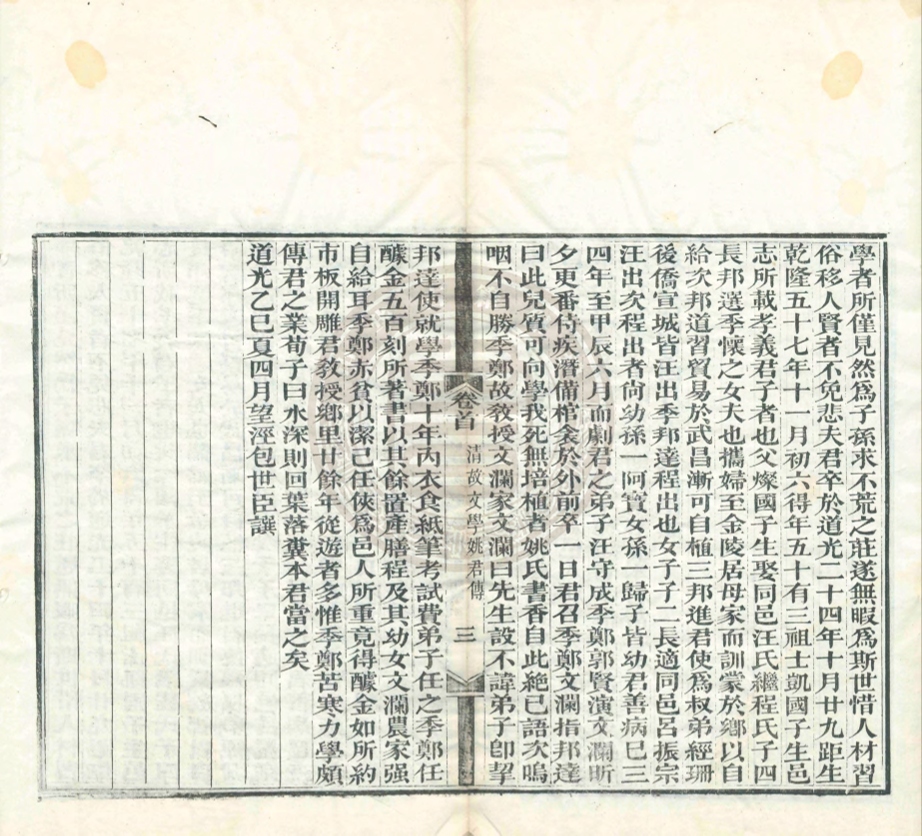 學者所僅見然爲子孫求不荒之莊遂無暇爲斯世惜人材習
俗移人賢者不免悲夫君卒於道光二十四年十月廿九距生
乾隆五十七年十一月初六得年五十有三祖士凱國子生邑
志所載孝義君子者也父燦國子生娶同邑汪氏繼程氏子四
長邦選季懷之女夫也攜婦至金陵居母家而訓蒙於鄉以自
給次邦道習貿易於武昌漸可自植三邦進君使爲叔弟經珊
後僑宣城皆汪出季邦達程出也女子子二長適同邑呂振宗
汪出次程出者尚幼孫一阿寶女孫一歸子皆幼君善病巳三
四年至甲辰六月而劇君之弟子汪守成季鄭郭賢演文瀾昕
夕更番侍疾潛備棺衾於外前卒一日君召季鄭文瀾指邦達
曰此兒質可向學我死無培植者姚氏書香自此絶已語次嗚
咽不自勝季鄭故教授文瀾家文瀾曰先生設不諱弟子卽挈
卷首
清故文學姚君傳
三
邦達使就學季鄭十年內衣食紙筆考試費弟子任之季鄭任
醵金五百刻所著書以其餘置產膳程及其幼女文瀾農家强
自給耳季鄭赤貧以潔己任俠爲邑人所重竟得醵金如所約
市板開雕君教授鄉里廿餘年從遊者多惟季鄭苦寒力學頗
傳君之業荀子曰水深則回葉落糞本君當之矣
道光乙巳夏四月望涇包世臣譔